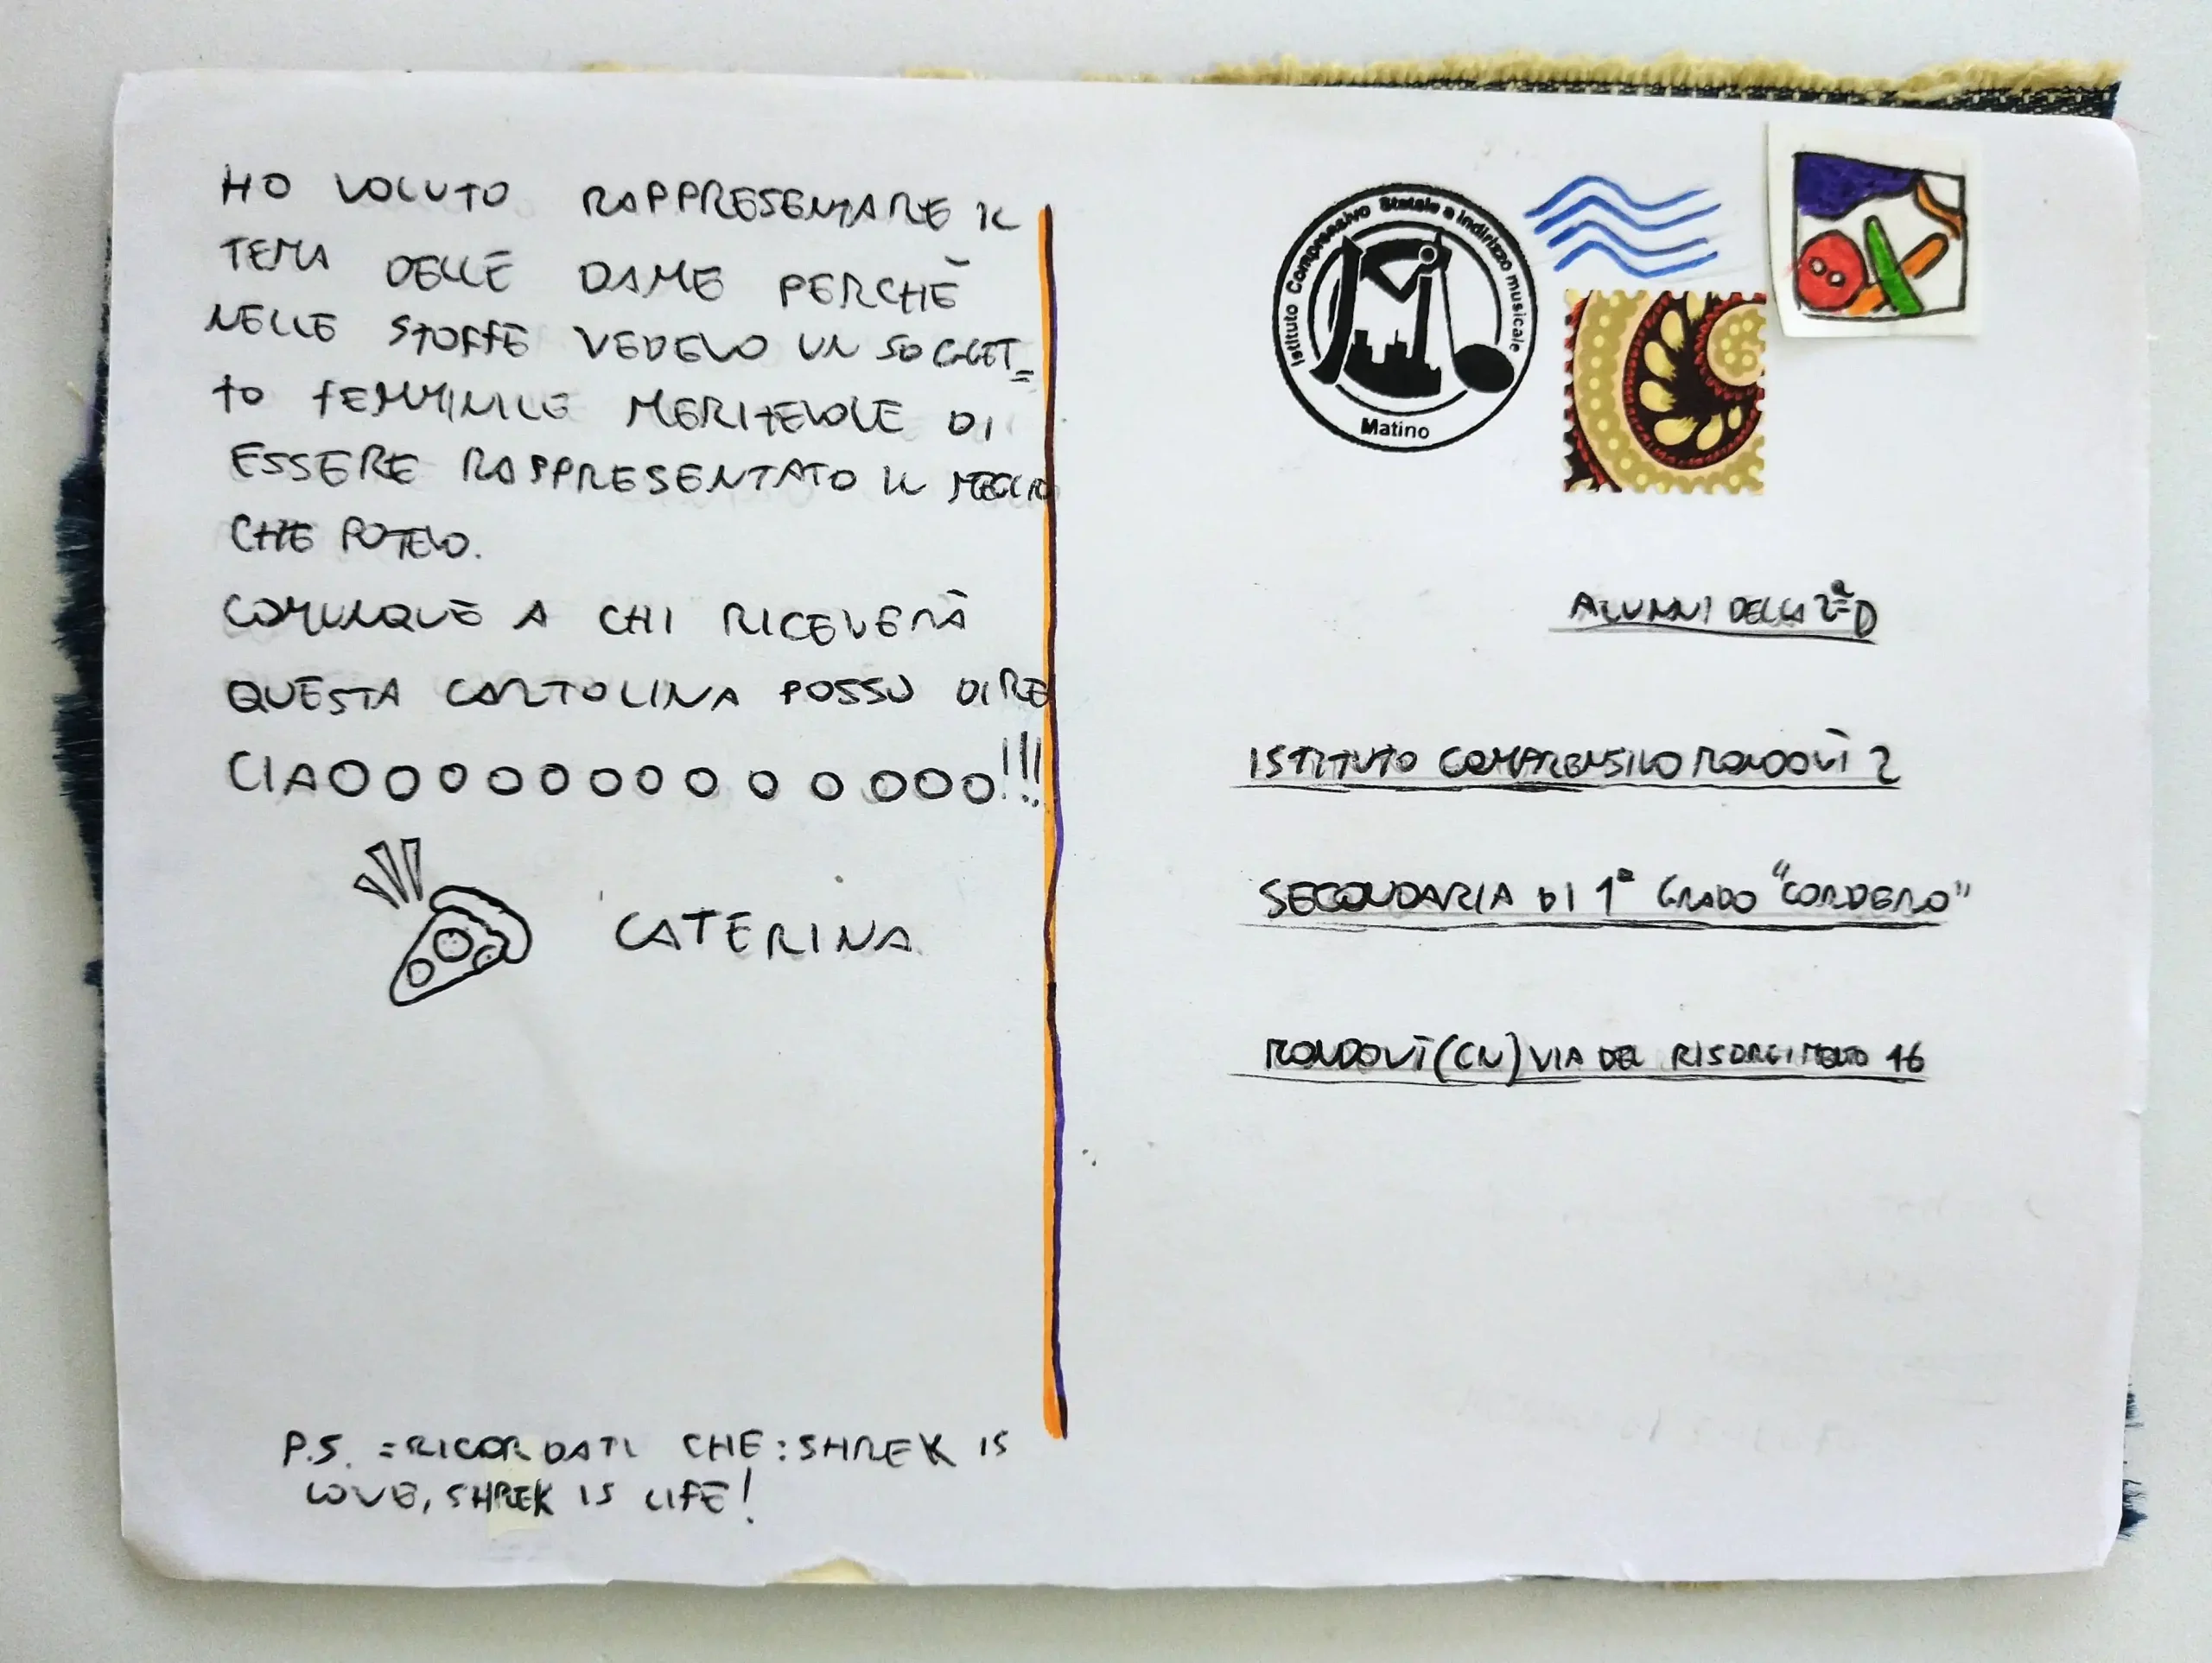 HO VOLUTO RAPPRESENTARE IL
TEMA DELLE DAME PERCHÈ
NELLE STOFFE VEDEVO UN SOGGET=
TO FEMMINILE MERITEVOLE DI
ESSERE RAPPRESENTATO IL MEGLIO
CHE POTEVO.
COMUNQUE A CHI RICEVERÀ
QUESTA CARTOLINA POSSO DIRE
CIAOOOOOOOOOOOOO!!!
CATERINA
P.S. =RICORDATI CHE: SHREK IS
LOVE, SHREK IS LIFE!
Istituto Comprensivo Statale a indirizzo musicale
Matino
ALUNNI DELLA 2ª D
ISTITUTO COMPRENSIVO MONDOVÌ 2
SECONDARIA DI 1° GRADO "CORDERO"
MONDOVÌ (CN) VIA DEL RISORGIMENTO 16